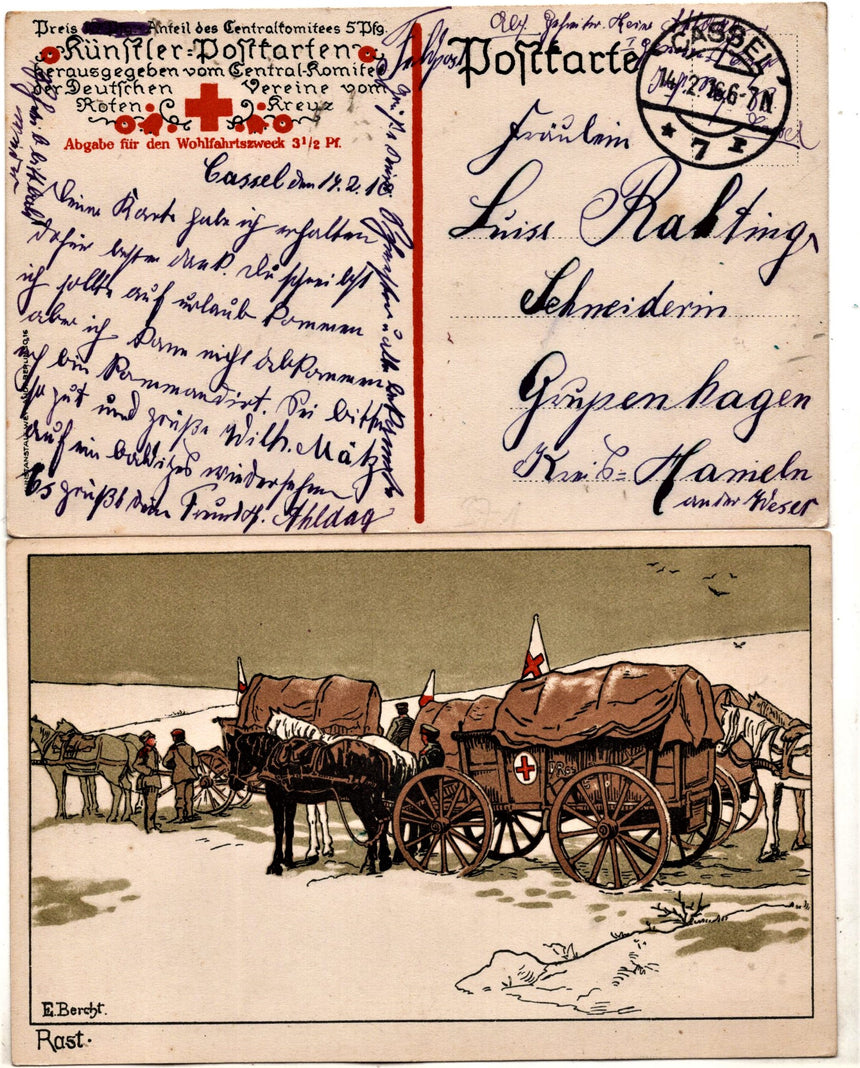 Preis Anteil des Centralkomitees 5 Pfg.
Künstler-Postkarten
herausgegeben vom Central-Komitee
der Deutschen Vereine vom
Roten Kreuz
Abgabe für den Wohlfahrtszweck 3 1/2 Pf.
Cassel den 14.2.16
Deine Karte habe ich erhalten
dafür besten dank. Du schreibst
ich sollte auf urlaub kommen
aber ich kann nicht abkommen
ich bin kommandirt. Sei bitte
so gut und grüße Wilh. Mätz
auf ein baldiges wiedersehen
Es grüßt dein Freund H. Ahldag
grüße deine Schwester u alle bekannte
Postkarte
CASSEL
14.2.16 6-7N
* 7 I
Fräulein
Luise Rahting
Schneiderin
Grupenhagen
Kreis= Hameln
an der Weser
E. Bercht.
Rast.